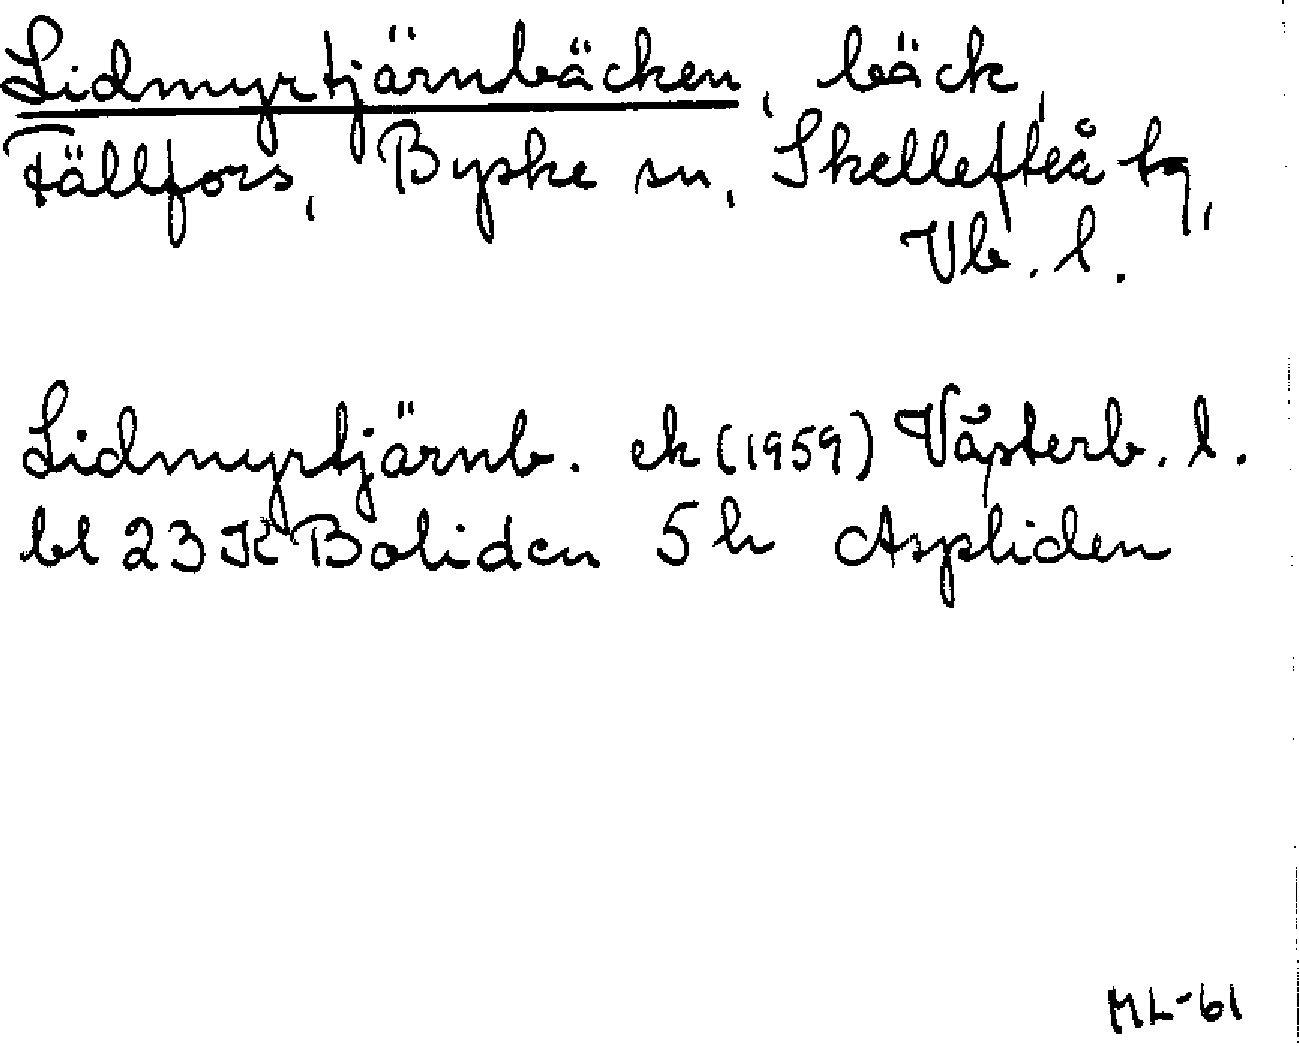 Lidmyrtjärnbäcken, bäck,
Fällfors, Byske sn, Skellefteå tg,
Vb. l.
Lidmyrtjärnb. ek (1959) Västerb. l.
bl 23 K Boliden 5 h Aspliden
ML-61